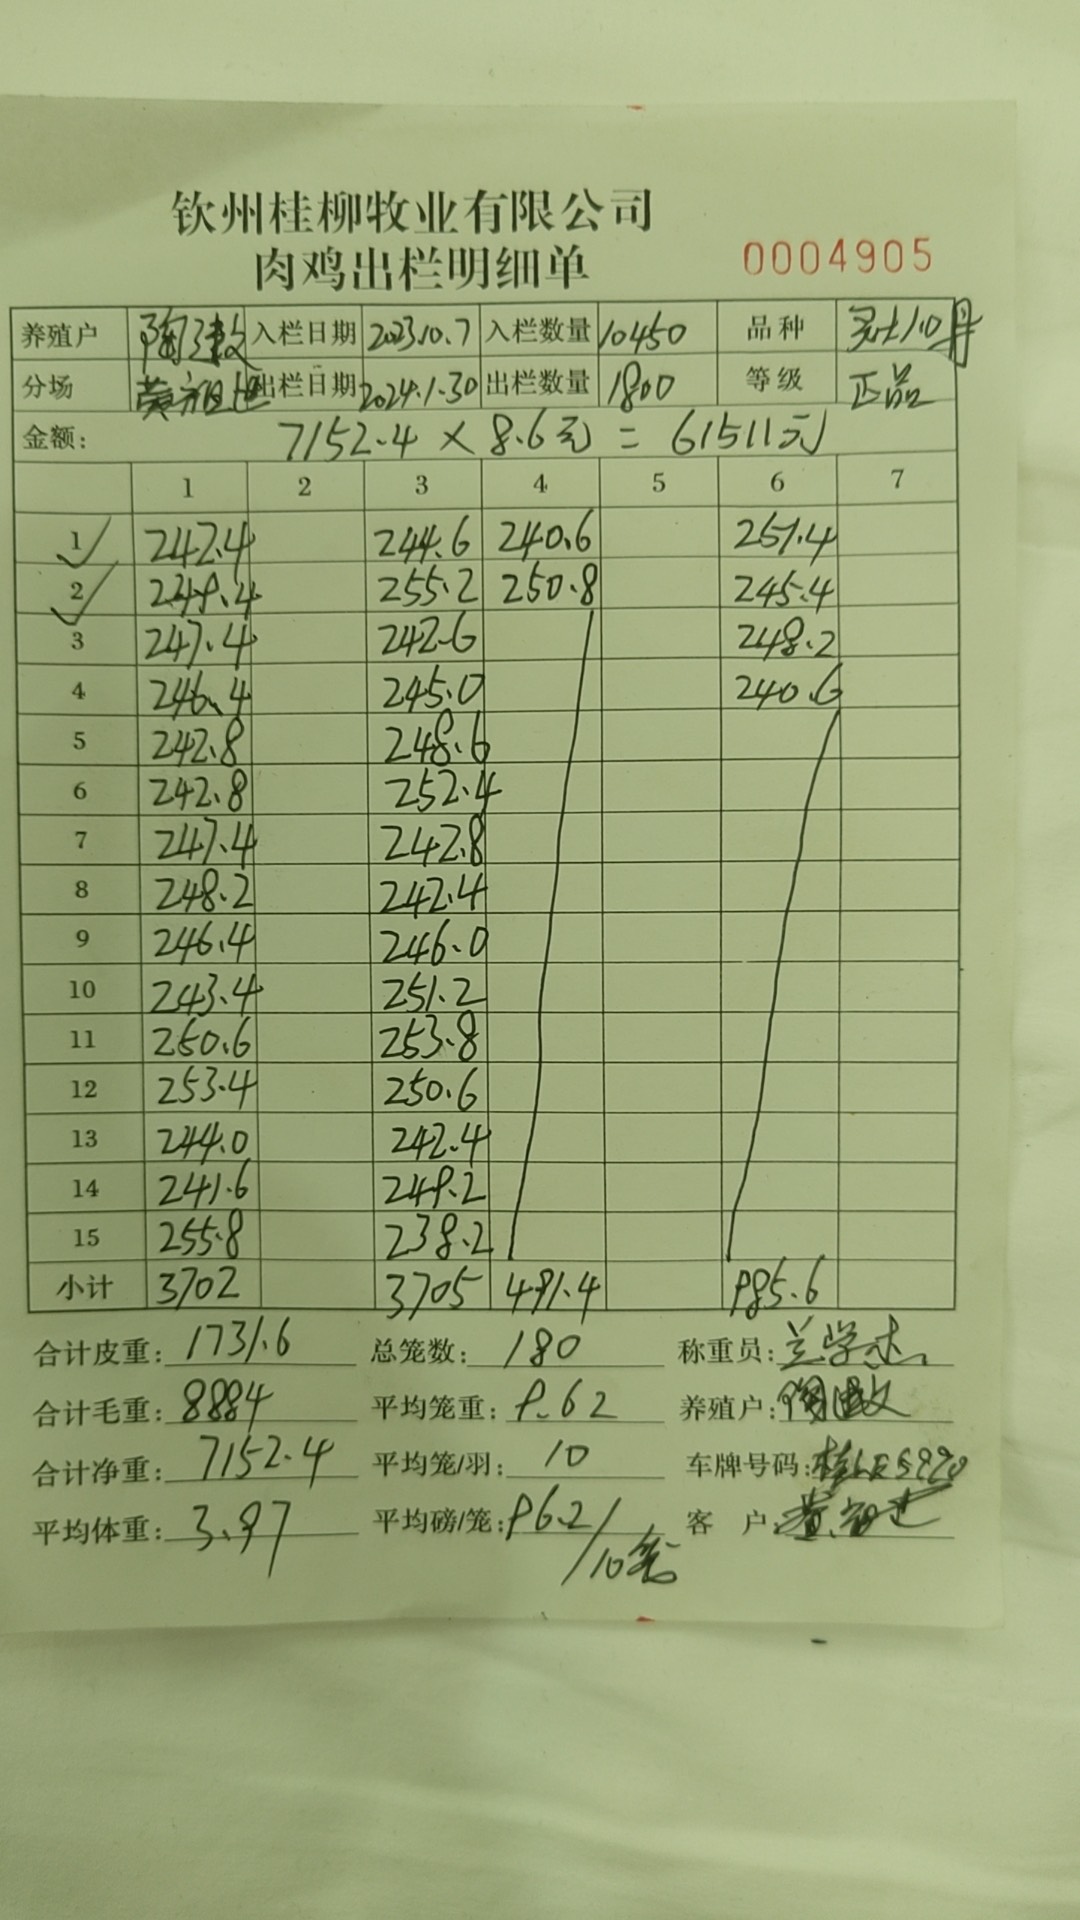 钦州桂柳牧业有限公司
肉鸡出栏明细单 0004905
养殖户 入栏日期 2023.10.7 入栏数量 10450 品种
分场 出栏日期 2024.1.30 出栏数量 1800 等级 正品
金额: 7152.4 × 8.6元 = 61511元
1 2 3 4 5 6 7
1 242.4 244.6 240.6 251.4
2 249.4 255.2 250.8 245.4
3 247.4 242.6 248.2
4 246.4 245.0 240.6
5 242.8 248.6
6 242.8 252.4
7 247.4 242.8
8 248.2 242.4
9 246.4 246.0
10 243.4 251.2
11 250.6 253.8
12 253.4 250.6
13 244.0 242.4
14 241.6 249.2
15 255.8 238.2
小计 3702 3705 491.4 985.6
合计皮重: 1731.6 总笼数: 180 称重员: 兰学杰
合计毛重: 8884 平均笼重: 9.62 养殖户:
合计净重: 7152.4 平均笼/羽: 10 车牌号码:
平均体重: 3.97 平均磅/笼: 96.2/10笼 客户: